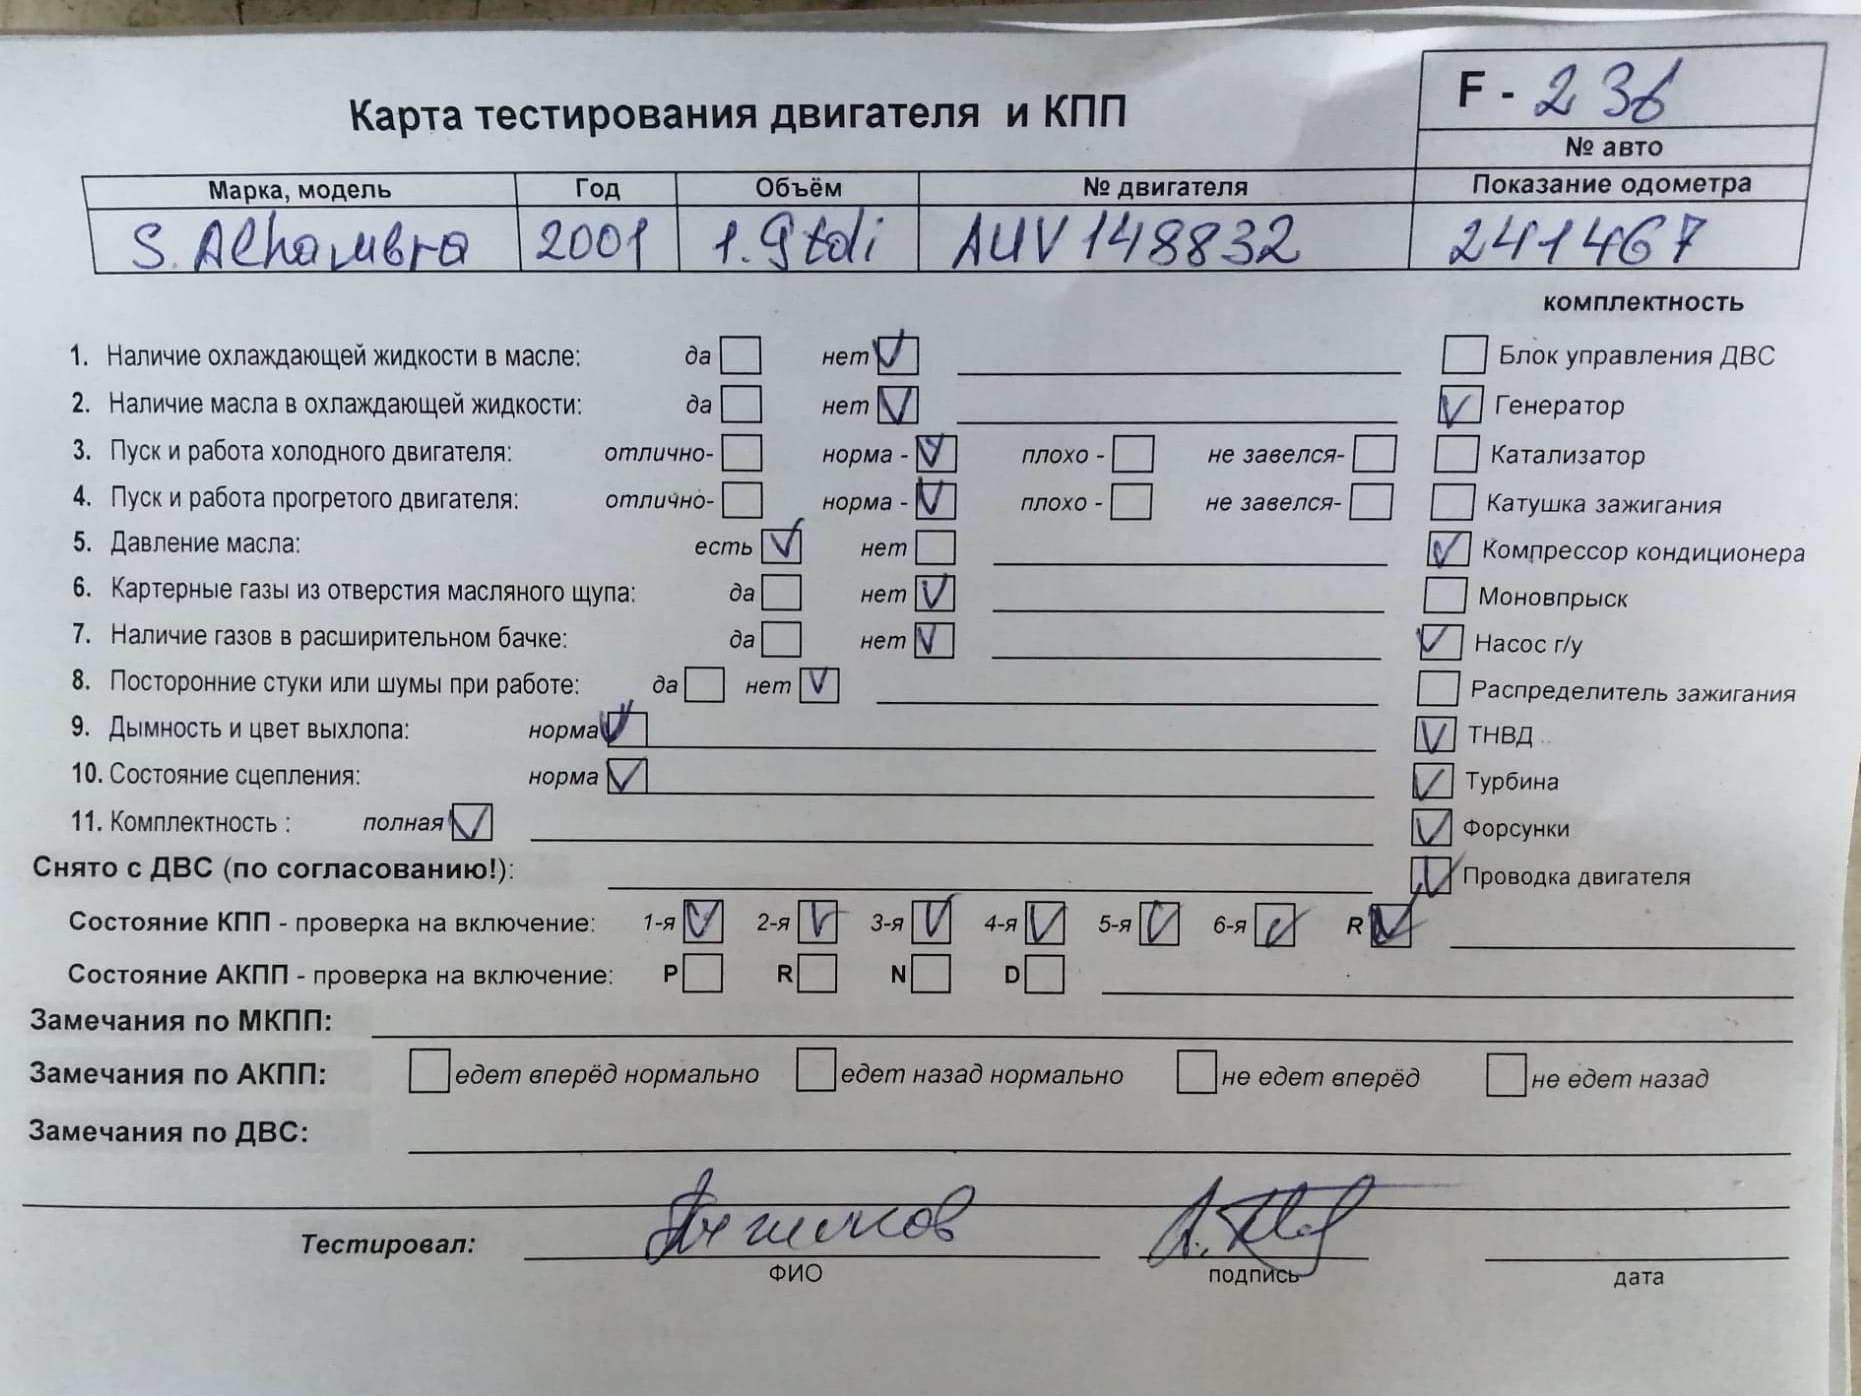 F - 236
Карта тестирования двигателя и КПП
№ авто
Марка, модель Год Объём № двигателя Показание одометра
S. Alhambra 2001 1.9 tdi AUV 148832 241467
комплектность
1. Наличие охлаждающей жидкости в масле: да нет Блок управления ДВС
2. Наличие масла в охлаждающей жидкости: да нет Генератор
3. Пуск и работа холодного двигателя: отлично- норма - плохо - не завелся- Катализатор
4. Пуск и работа прогретого двигателя: отлично- норма - плохо - не завелся- Катушка зажигания
5. Давление масла: есть нет Компрессор кондиционера
6. Картерные газы из отверстия масляного щупа: да нет Моновпрыск
7. Наличие газов в расширительном бачке: да нет Насос г/у
8. Посторонние стуки или шумы при работе: да нет Распределитель зажигания
9. Дымность и цвет выхлопа: норма ТНВД
10. Состояние сцепления: норма Турбина
11. Комплектность : полная Форсунки
Снято с ДВС (по согласованию!): Проводка двигателя
Состояние КПП - проверка на включение: 1-я 2-я 3-я 4-я 5-я 6-я R
Состояние АКПП - проверка на включение: P R N D
Замечания по МКПП:
Замечания по АКПП: едет вперёд нормально едет назад нормально не едет вперёд не едет назад
Замечания по ДВС:
Тестировал:
ФИО подпись дата